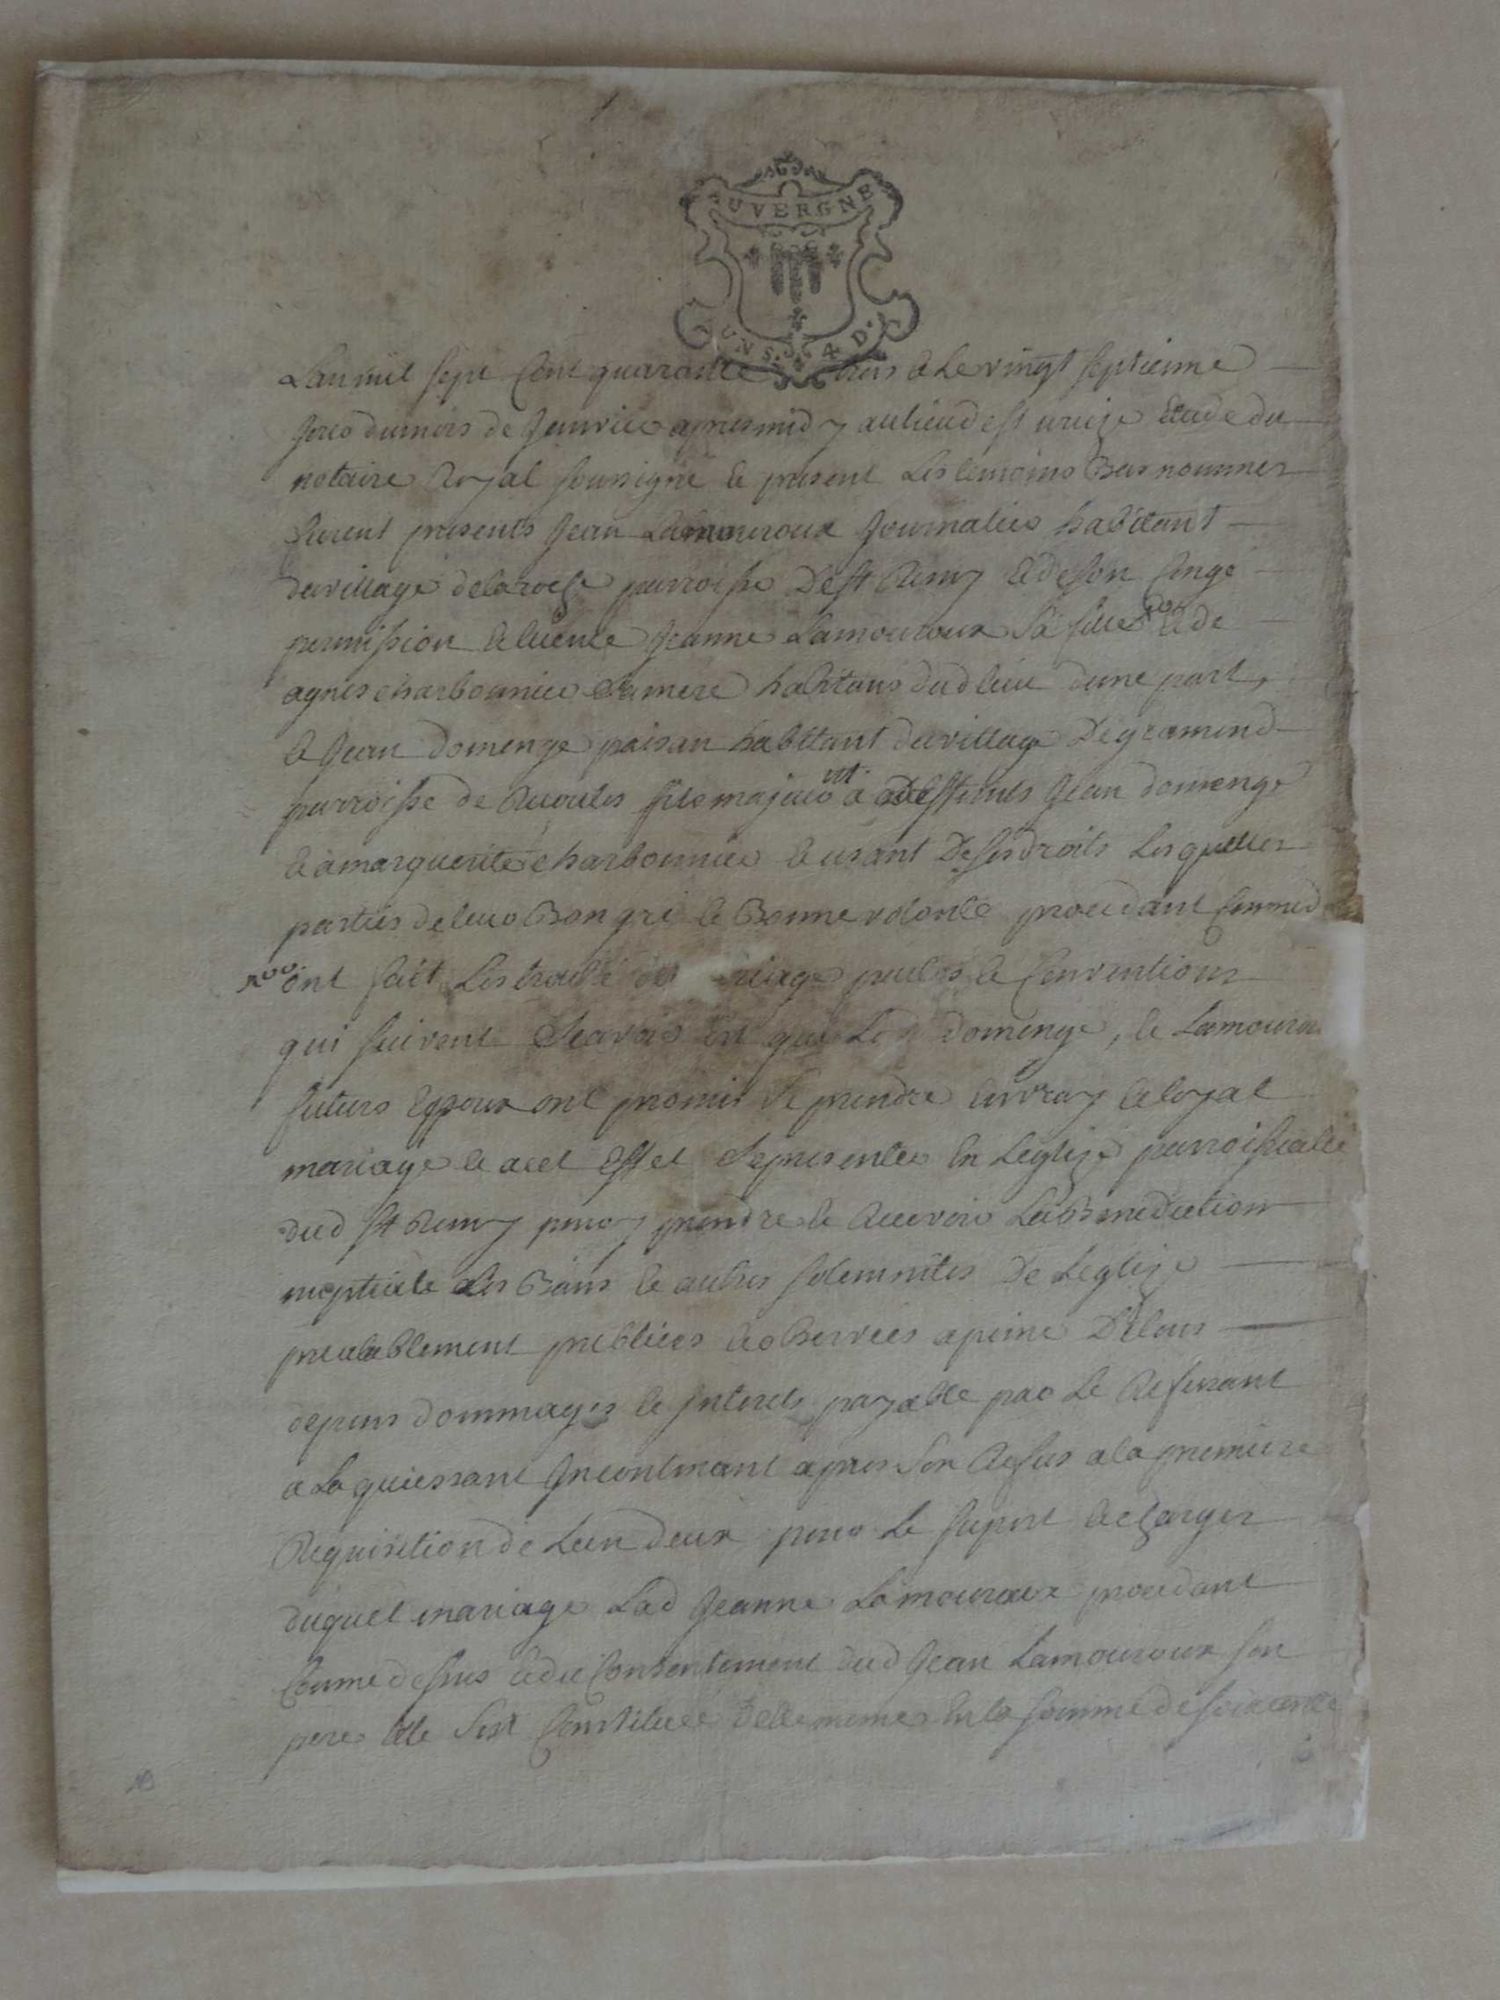 AUVERGNE
UN S. 4 D.
Lan mil sept Cent quarante trois & le vingt septieme
Jour du mois de Janvier apres midy au lieu de st urcize Etude du
notaire Royal soussigné & present les temoins Bas nommer
furent presents Jean Lamouroux Journalier habitant
du village de laroche parroisse De st Remy & de son Congé
permission & licence Jeanne Lamouroux sa fille & de
agnes charbonnier sa mere habitans dud lieu dune part,
& Jean domenge paisan habitant du village De gramond
parroisse de Recoules fils majeur a deffunts Jean domenge
& a marguerite charbonnier & usant De ses droits Lesquelles
parties de leur Bon gré & Bonne volonté procedant Comme d
ont fait Les traité de riage pactes & Conventions
qui suivent Scavoir est que Led domenge, & Lamourou
futurs Epoux ont promis se prendre en vray & loyal
mariage & a cet Effet se presenter En Leglize parroissialle
dud st Remy pour y prendre & Recevoir La Benediction
nuptiale Les Bans & autres solemnites De Leglize
prealablement publiées & observées a peine De tous
depens dommages & Interets payable par Le Refusant
a Laquiessant Incontinant apres son Refus a la premiere
Requisition de Lun deux pour Le suport & charges
duquel mariage Lad Jeanne Lamouroux procedant
Comme dessus & du Consentement dud Jean Lamouroux son
pere Elle sest Constituée Elle meme En la somme de soixante